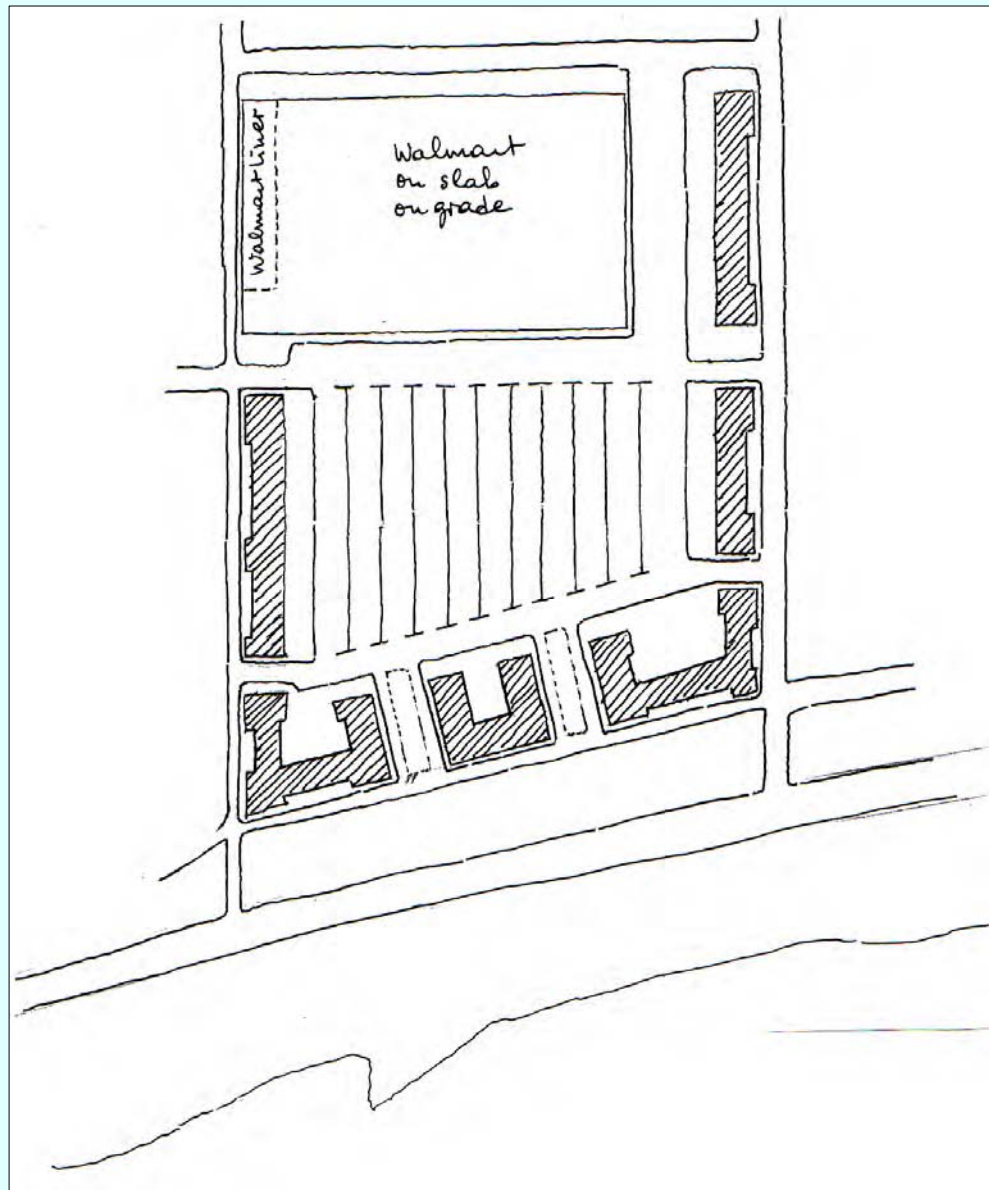 Walmart Liner
Walmart
on slab
on grade